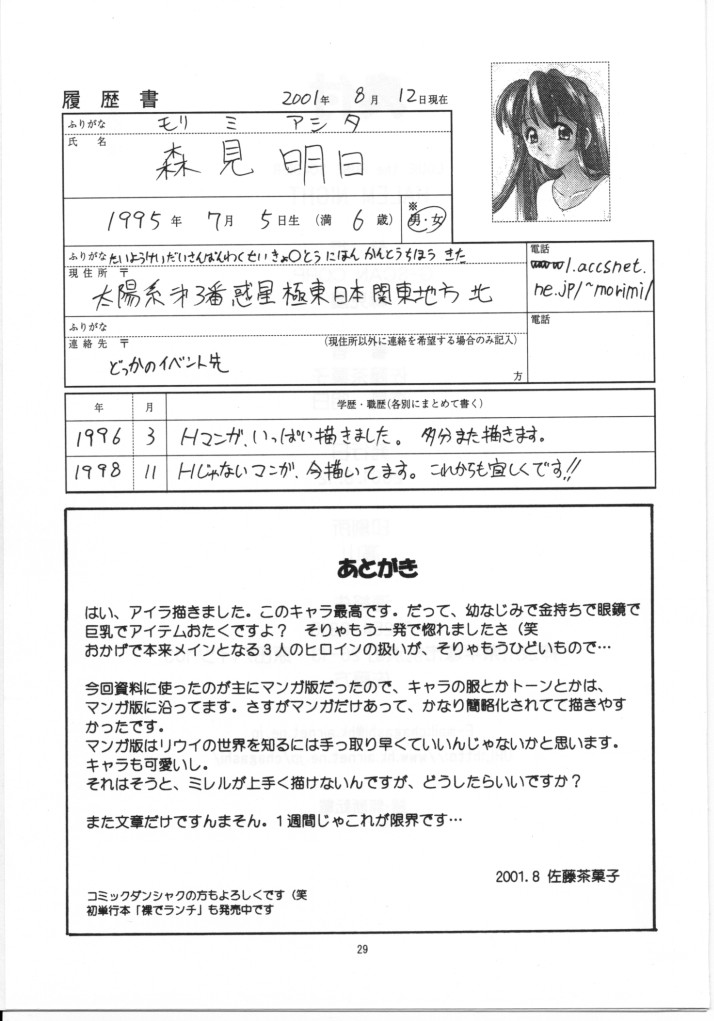 履歴書 2001年 8月 12日現在
ふりがな モリ ミ アシタ
氏名 森見 明日
1995年 7月 5日生 (満 6歳) ※男・女
ふりがな たいようけいだいさんばんわくせいきょくとうにほん かんとうちほう きた
現住所 〒
太陽系第3番惑星極東日本関東地方 北
電話
www1.accsnet.
ne.jp/~morimi/
ふりがな
連絡先 〒 (現住所以外に連絡を希望する場合のみ記入)
どっかのイベント先
方
電話
年 月 学歴・職歴(各別にまとめて書く)
1996 3 Hマンガ、いっぱい描きました。 多分また描きます。
1998 11 Hじゃないマンガ、今描いてます。これからも宜しくです!!
あとがき
はい、アイラ描きました。このキャラ最高です。だって、幼なじみで金持ちで眼鏡で
巨乳でアイテムおたくですよ? そりゃもう一発で惚れましたさ(笑
おかげで本来メインとなる3人のヒロインの扱いが、そりゃもうひどいもので…
今回資料に使ったのが主にマンガ版だったので、キャラの服とかトーンとかは、
マンガ版に沿ってます。さすがマンガだけあって、かなり簡略化されてて描きやす
かったです。
マンガ版はリウイの世界を知るには手っ取り早くていいんじゃないかと思います。
キャラも可愛いし。
それはそうと、ミレルが上手く描けないんですが、どうしたらいいですか?
また文章だけですんまそん。1週間じゃこれが限界です…
2001.8 佐藤茶菓子
コミックダンシャクの方もよろしくです(笑
初単行本「裸でランチ」も発売中です
29